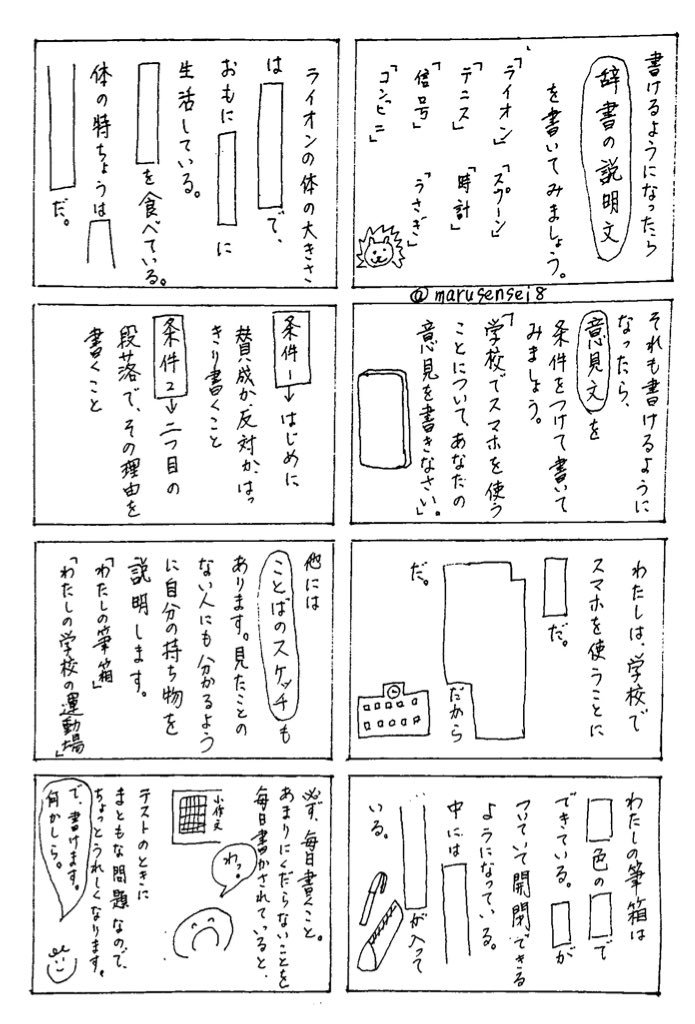 書けるようになったら
辞書の説明文
を書いてみましょう。
「ライオン」「スプーン」
「テニス」「時計」
「信号」「うさぎ」
「コンビニ」
@marusensei8
ライオンの体の大きさ
は　　　で、
おもに　　　に
生活している。
　　　を食べている。
体の特ちょうは
　　　だ。
それも書けるように
なったら、
意見文を
条件をつけて書いて
みましょう。
「学校でスマホを使う
ことについて、あなたの
意見を書きなさい」。
条件1→はじめに
賛成か、反対か、はっ
きり書くこと
条件2→二つ目の
段落で、その理由を
書くこと
わたしは、学校で
スマホを使うことに
　　　だ。
　　　だから
だ。
他には
ことばのスケッチも
あります。見たことの
ない人にも分かるよう
に自分の持ち物を
説明します。
「わたしの筆箱」
「わたしの学校の運動場」
わたしの筆箱は
　　　色の　　　で
できている。　　　が
ついていて開閉できる
ようになっている。
中には
　　　が入って
いる。
必ず、毎日書くこと。
あまりにくだらないことを
毎日書かされていると、
小作文
わっ!
テストのときに
まともな問題なので、
ちょっとうれしくなります。
で、書けます。
何かしら。